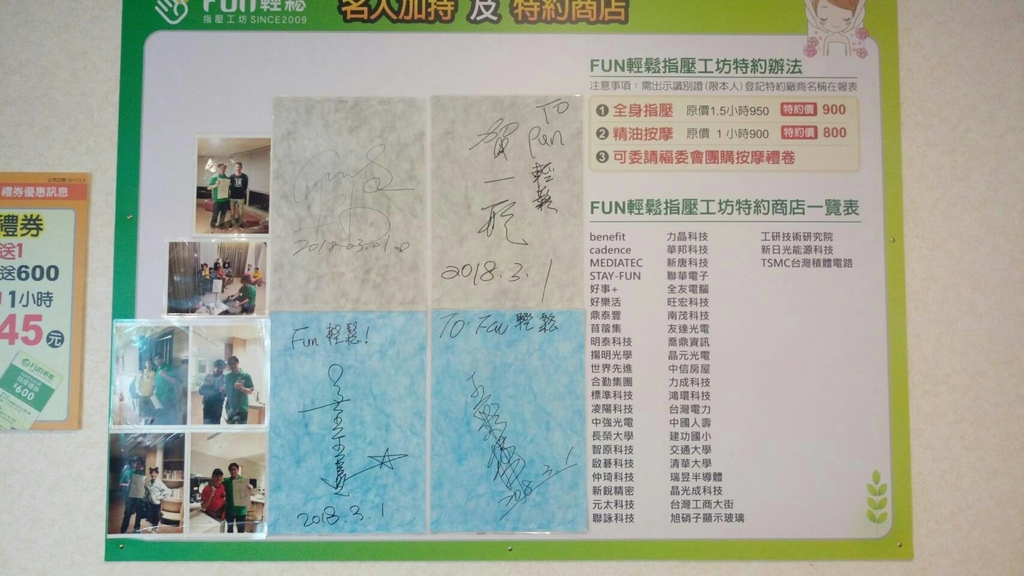 FUN輕鬆
指壓工坊SINCE2009
名人加持 及 特約商店
禮券優惠訊息
禮券
送1
送600
1小時
45元
FUN輕鬆
$600
2018.03.01
TO
Fun
輕鬆
賀一航
2018.3.1
Fun 輕鬆!
2018.3.1
TO Fun 輕鬆
2018.3.1
FUN輕鬆指壓工坊特約辦法
注意事項：需出示識別證(限本人)登記特約廠商名稱在報表
1 全身指壓 原價1.5小時950 特約價 900
2 精油按摩 原價 1 小時900 特約價 800
3 可委請福委會團購按摩禮卷
FUN輕鬆指壓工坊特約商店一覽表
benefit
cadence
MEDIATEC
STAY-FUN
好事+
好樂活
鼎泰豐
苜蓿集
明泰科技
揚明光學
世界先進
合勤集團
標準科技
凌陽科技
中強光電
長榮大學
智原科技
啟碁科技
仲琦科技
新銳精密
元太科技
聯詠科技
力晶科技
華邦科技
新唐科技
聯華電子
全友電腦
旺宏科技
南茂科技
友達光電
喬鼎資訊
晶元光電
中信房屋
力成科技
鴻環科技
台灣電力
中國人壽
建功國小
交通大學
清華大學
瑞昱半導體
晶光成科技
台灣工商大街
旭硝子顯示玻璃
工研技術研究院
新日光能源科技
TSMC台灣積體電路